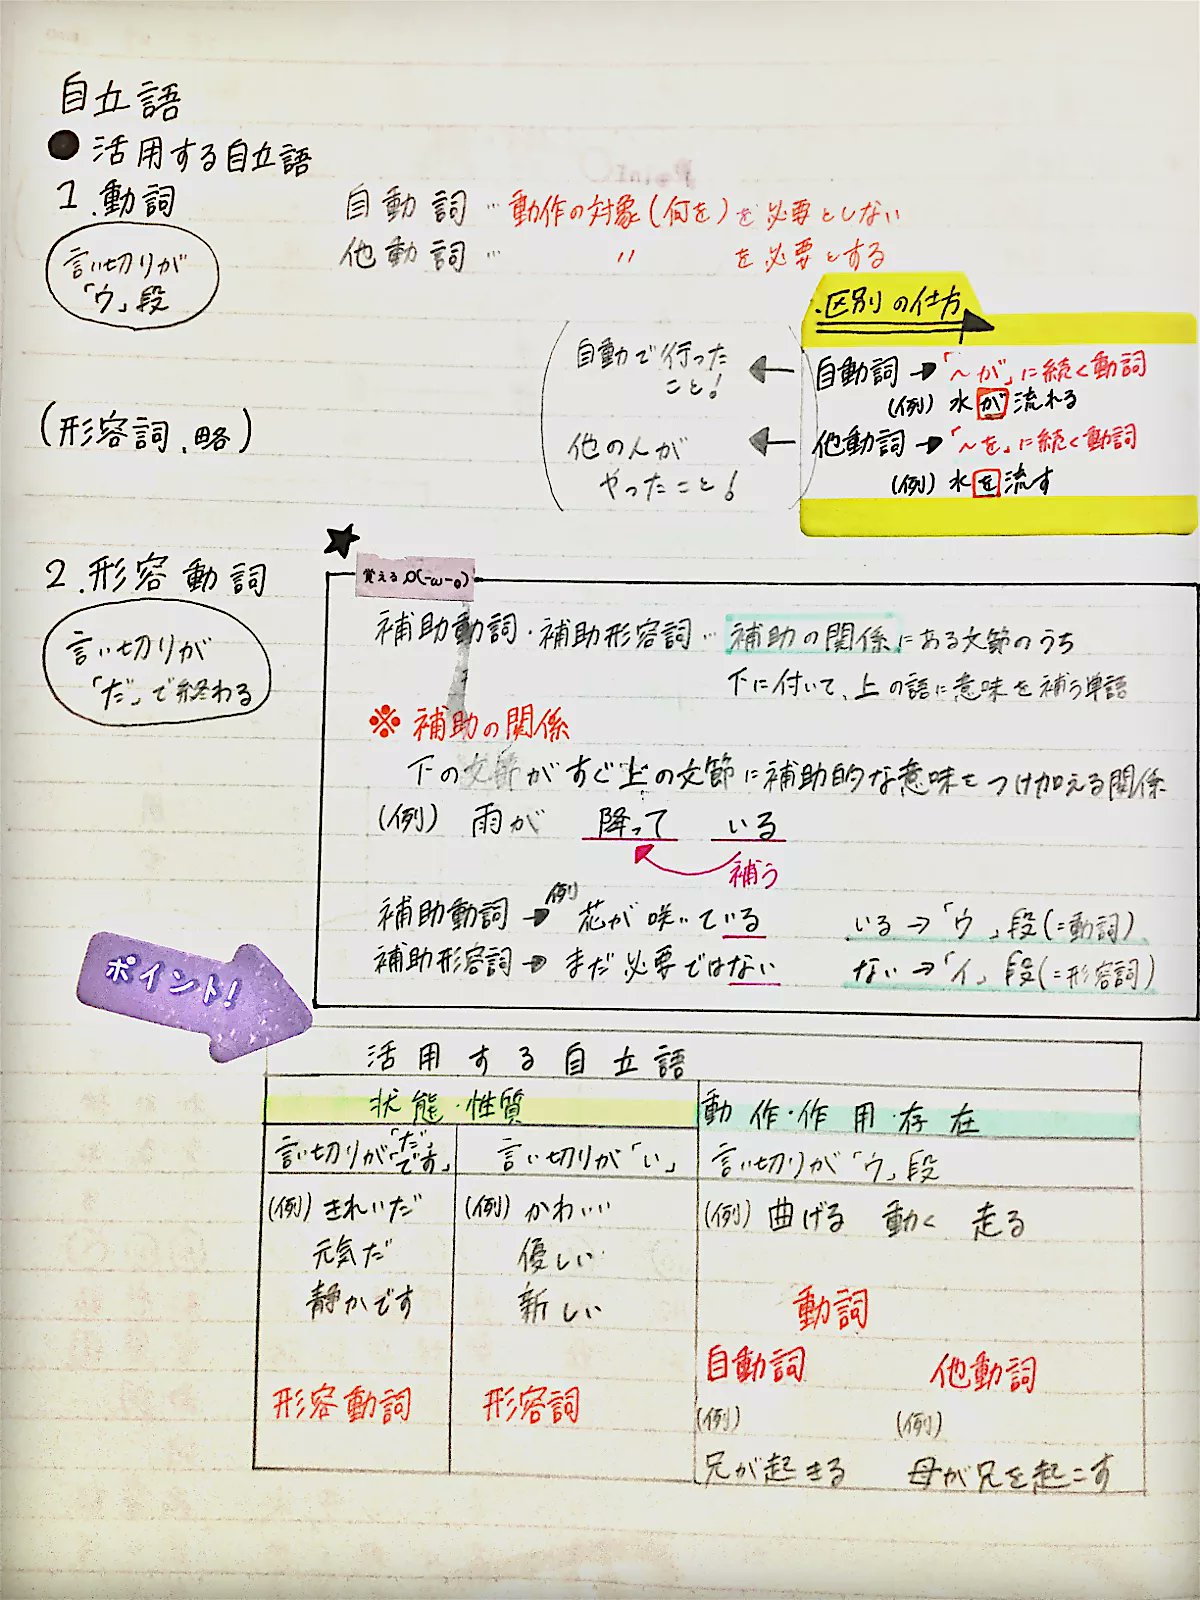 自立語
●活用する自立語
1.動詞
言い切りが
「ウ」段
自動詞…動作の対象(何を)を必要としない
他動詞… 〃 を必要とする
・区別の仕方
自動詞→「~が」に続く動詞
(例)水が流れる
他動詞→「~を」に続く動詞
(例)水を流す
自動で行った
こと!
他の人が
やったこと!
(形容詞、略)
2.形容動詞
言い切りが
「だ」で終わる
★
覚えるρ(-ω-o)
補助動詞・補助形容詞…補助の関係にある文節のうち
下に付いて、上の語に意味を補う単語
※補助の関係
下の文節がすぐ上の文節に補助的な意味をつけ加える関係
(例)雨が 降って いる
補う
補助動詞→(例)花が咲いている いる→「ウ」段(=動詞)
補助形容詞→まだ必要ではない ない→「イ」段(=形容詞)
ポイント!
活用する自立語
状態・性質
動作・作用・存在
言い切りが「だ」「です」
言い切りが「い」
言い切りが「ウ」段
(例)きれいだ
元気だ
静かです
形容動詞
(例)かわいい
優しい
新しい
形容詞
(例)曲げる 動く 走る
動詞
自動詞 他動詞
(例) (例)
兄が起きる 母が兄を起こす